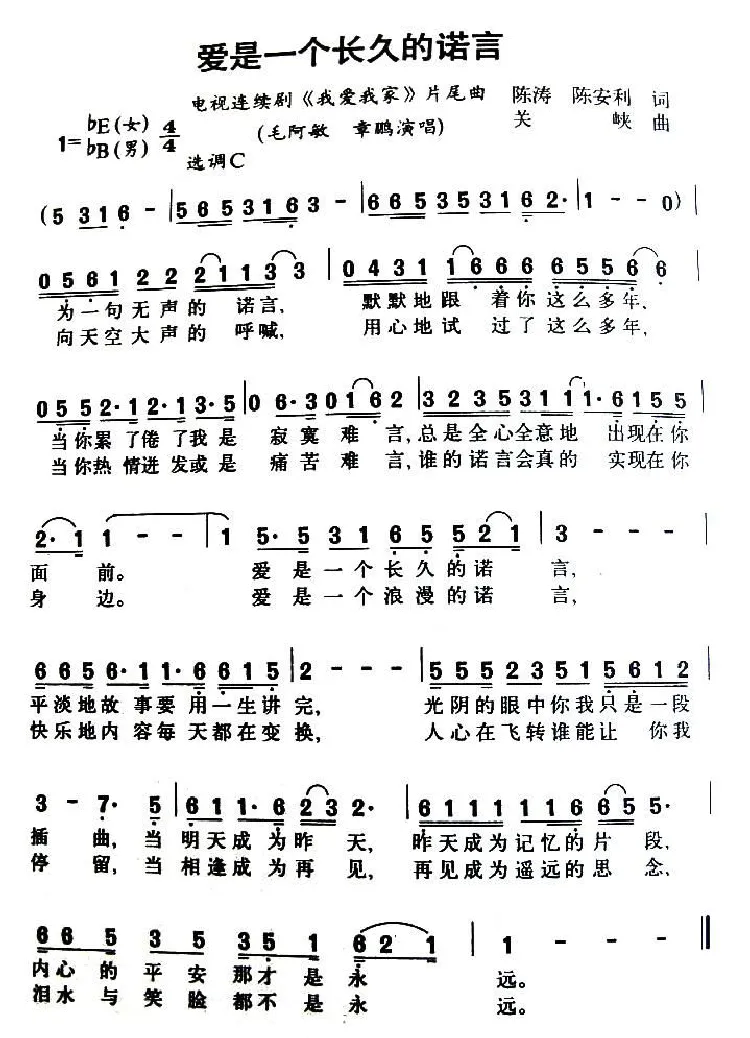 爱是一个长久的诺言
电视连续剧《我爱我家》片尾曲 陈涛 陈安利 词
1=♭E(女) 4/4 (毛阿敏 章鹏演唱) 关峡 曲
♭B(男)
选调C
(5 316 - | 565316 3 - | 665 5316 2· | 1 - - 0) |
0561 22 2113 3 | 0431 1666 6556 6 |
为一句无声的 诺言, 默默地跟 着你这么多年、
向天空大声的 呼喊, 用心地试 过了这么多年、
055 2·12·1 3·5 | 0 6·3 016 2 | 3235311 1·6155 |
当你累了倦了我是 寂寞难 言,总是全心全意地 出现在你
当你热情迸发或是 痛苦难 言,谁的诺言会真的 实现在你
2·1 1 - - | 1 5·5 31 65 521 | 3 - - - |
面 前。 爱是一个长久的诺 言,
身 边。 爱是一个浪漫的诺 言,
6656·1 1·6615 | 2 - - - | 555235 15612 |
平淡地故事要用一生讲 完, 光阴的眼中你我只是一段
快乐地内容每天都在变 换, 人心在飞转谁能让 你我
3 - 7· 5 | 611·6 23 2· | 6111 116 65 5· |
插 曲,当 明天成为昨 天,昨天成为记忆的片 段,
停 留,当 相逢成为再 见,再见成为遥远的思 念,
665 35 351 621 | 1 - - - ‖
内心的平安那才是永 远。
泪水与笑脸都不是永 远。